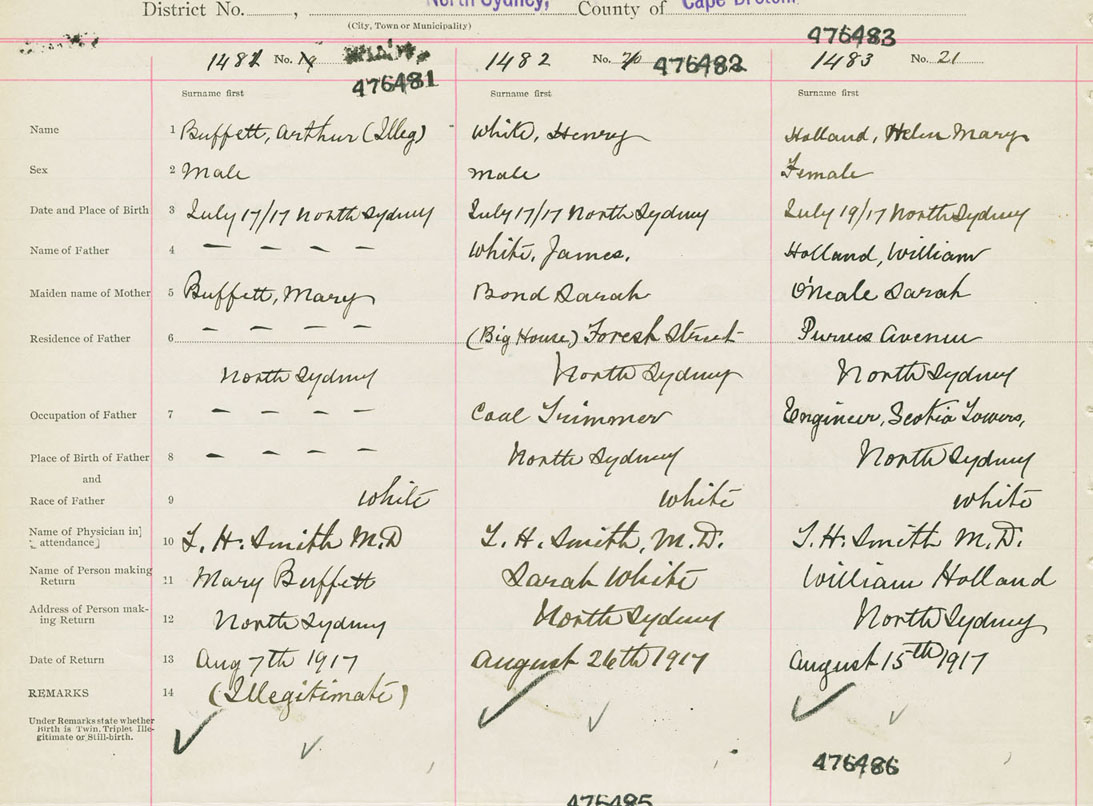 District No. , North Sydney, County of Cape Breton
(City, Town or Municipality)
476483
1481 No. 476481 1482 No. 476482 1483 No. 21
Surname first Surname first Surname first
Name 1 Buffett, Arthur (Illeg) White, Henry Holland, Helen Mary
Sex 2 Male Male Female
Date and Place of Birth 3 July 17/17 North Sydney July 17/17 North Sydney July 19/17 North Sydney
Name of Father 4 — — — — White, James. Holland, William
Maiden name of Mother 5 Buffett, Mary Bond Sarah O'Neale Sarah
Residence of Father 6 — — — — (Big House) Foresh Street Purves Avenue
North Sydney North Sydney North Sydney
Occupation of Father 7 — — — — Coal Trimmer Engineer, Scotia Towers,
Place of Birth of Father 8 — — — — North Sydney North Sydney
and
Race of Father 9 White White White
Name of Physician in] 10 L. H. Smith M.D L. H. Smith, M.D. L. H. Smith M.D.
attendance]
Name of Person making 11 Mary Buffett Sarah White William Holland
Return
Address of Person mak-
ing Return 12 North Sydney North Sydney North Sydney
Date of Return 13 Aug 7th 1917 August 26th 1917 August 15th 1917
REMARKS 14 (Illegitimate)
Under Remarks state whether
Birth is Twin, Triplet Ille-
gitimate or Still-birth.
476486
476485